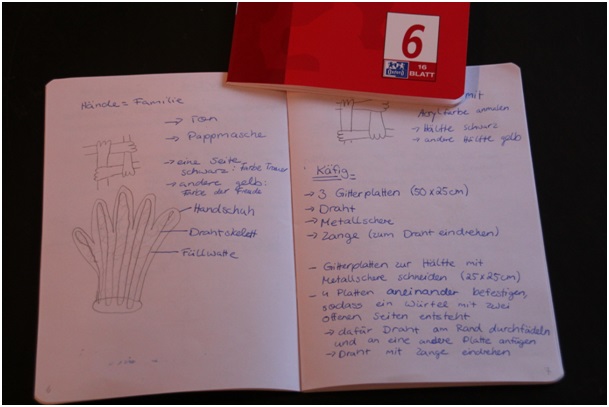 6
Oxford
16
BLATT
Hände = Familie
→ Ton
→ Pappmasche
→ eine Seite
schwarz: Farbe Trauer
→ andere gelb:
Farbe der Freude
Handschuh
Drahtskelett
Füllwatte
6
mit
Acrylfarbe anmalen
→ Hälfte schwarz
→ andere Hälfte gelb
Käfig =
→ 3 Gitterplatten (50x25cm)
→ Draht
→ Metallschere
→ Zange (zum Draht eindrehen)
- Gitterplatten zur Hälfte mit
Metallschere schneiden (25x25cm)
- 4 Platten aneinander befestigen,
sodass ein Würfel mit zwei
offenen Seiten entsteht
→ dafür Draht am Rand durchfädeln
und an eine andere Platte anfügen
→ Draht mit Zange eindrehen
7